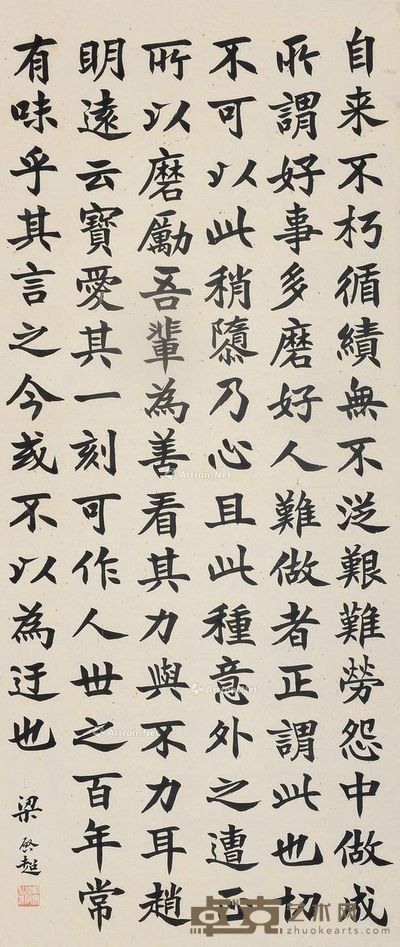 自来不朽循績無不泛艱難勞怨中做成
所謂好事多磨好人難做者正謂此也切
不可以此稍隳乃心且此種意外之遭正
所以磨勵吾輩為善看其力與不力耳趙
明遠云寶愛其一刻可作人世之百年常
有味乎其言之今或不以為迂也
梁啟超
卓克艺术网
www.zhuokearts.com
Artron.Net
Artron.Net
Artron.Net
Artron.Net